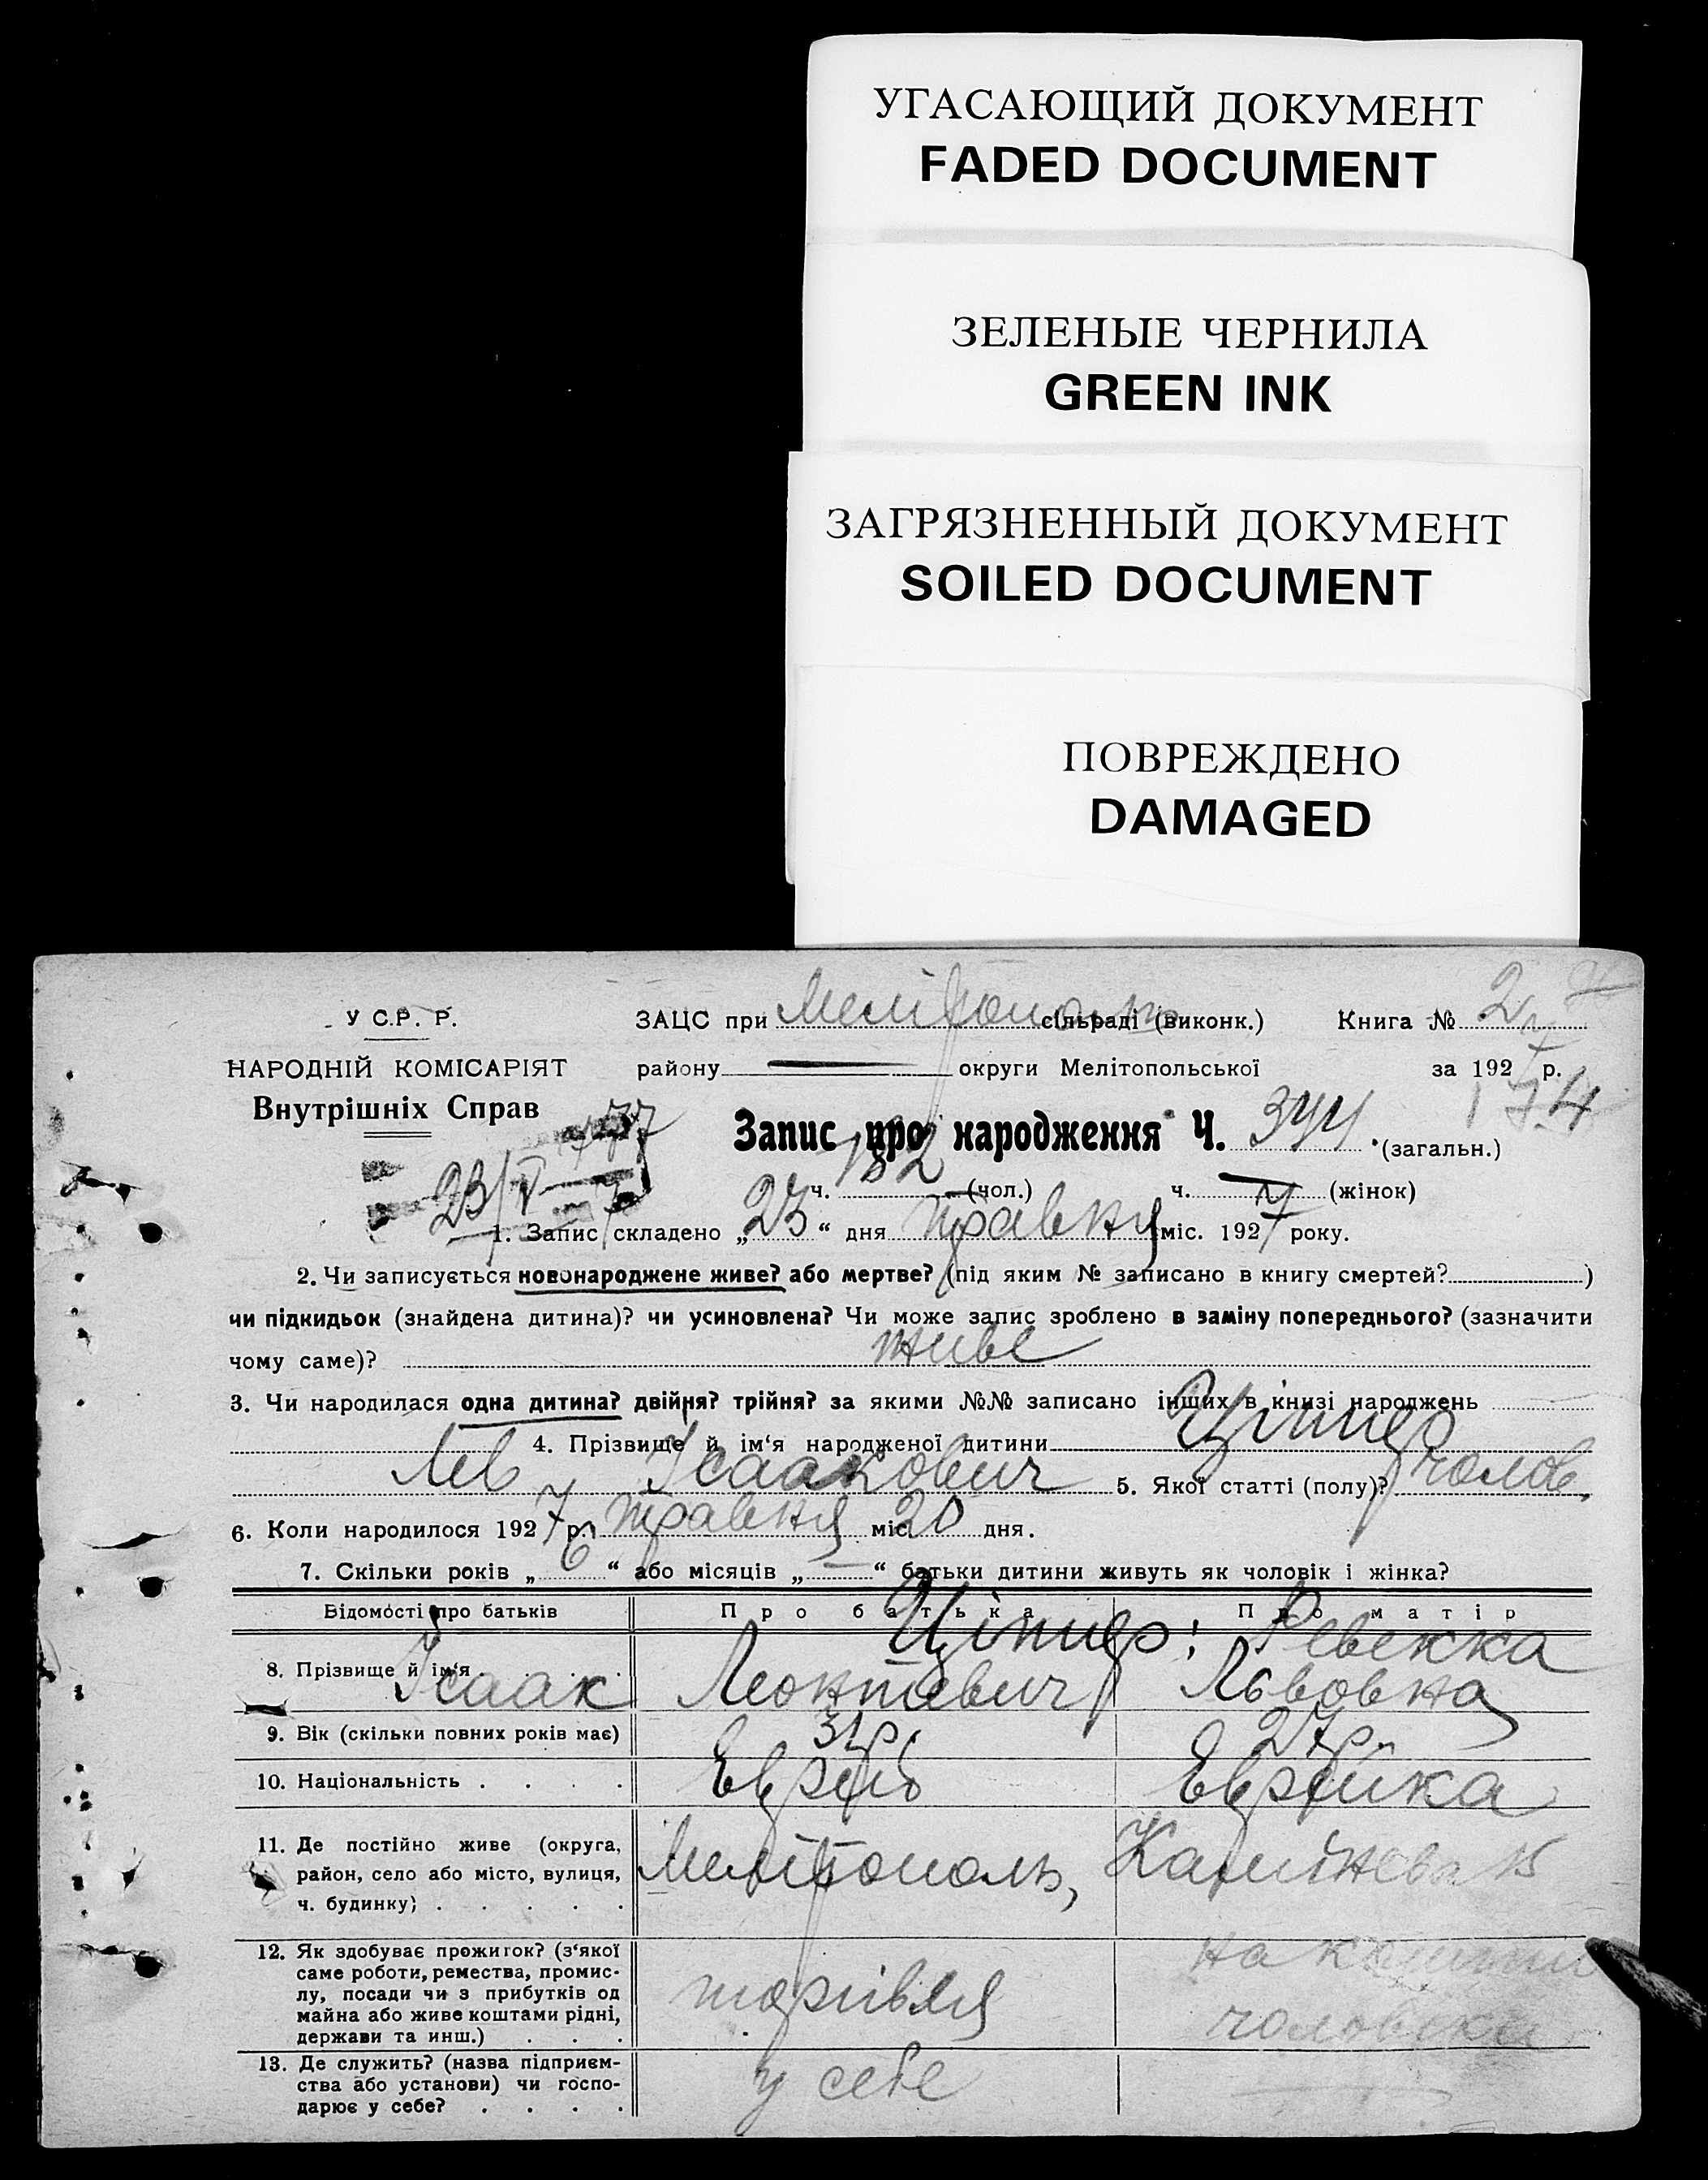 УГАСАЮЩИЙ ДОКУМЕНТ
FADED DOCUMENT
ЗЕЛЕНЫЕ ЧЕРНИЛА
GREEN INK
ЗАГРЯЗНЕННЫЙ ДОКУМЕНТ
SOILED DOCUMENT
ПОВРЕЖДЕНО
DAMAGED
У С.Р. Р. ЗАЦС при сільраді (виконк.) Книга № 2
НАРОДНІЙ КОМІСАРІЯТ району — округи Мелітопольської за 1927 р.
Внутрішніх Справ 177 174
Запис про народження Ч. 344 (загальн.)
23/V 7 ч. 182 (чол.) ч. — (жінок)
1. Запис складено „23“ дня травня міс. 1927 року.
2. Чи записується новонароджене живе? або мертве? (під яким № записано в книгу смертей? )
чи підкидьок (знайдена дитина)? чи усиновлена? Чи може запис зроблено в заміну попереднього? (зазначити
чому саме)? живе
3. Чи народилася одна дитина? двійня? трійня? за якими №№ записано інших в книзі народжень
4. Прізвище й ім‘я народженої дитини Ціпцер
Лев Ісаакович 5. Якої статті (полу)? чолов.
6. Коли народилося 1927 р. травня міс. 20 дня.
7. Скільки років „6“ або місяців „—“ батьки дитини живуть як чоловік і жінка?
Відомості про батьків Про батька Про матір
Ціпцер: Ревекка
8. Прізвище й ім‘я . . . . Ісаак Леонтієвич Львовна
9. Вік (скільки повних років має) 31 р. 27 р.
10. Національність . . . . Еврей Еврейка
11. Де постійно живе (округа,
район, село або місто, вулиця,
ч. будинку) . . . . . Мелітополь, 15
12. Як здобуває прожиток? (з‘якої
саме роботи, ремества, промис-
лу, посади чи з прибутків од
майна або живе коштами рідні,
держави та инш.) . . . торгівля на кошти
чоловіка
13. Де служить? (назва підприєм-
ства або установи) чи госпо-
дарює у себе? . . . . у себе —